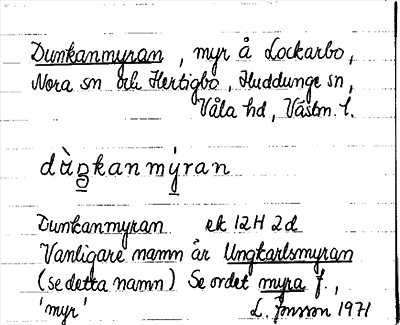 Dunkanmyran , myr å Lockarbo,
Nora sn och Hertigbo, Huddunge sn,
Våla hd, Västm. l.
dàŋkanmýran
Dunkanmyran ek 12H 2d
Vanligare namn är Ungkarlsmyran
(se detta namn) Se ordet myra f.,
'myr' L. Jonsson 1971